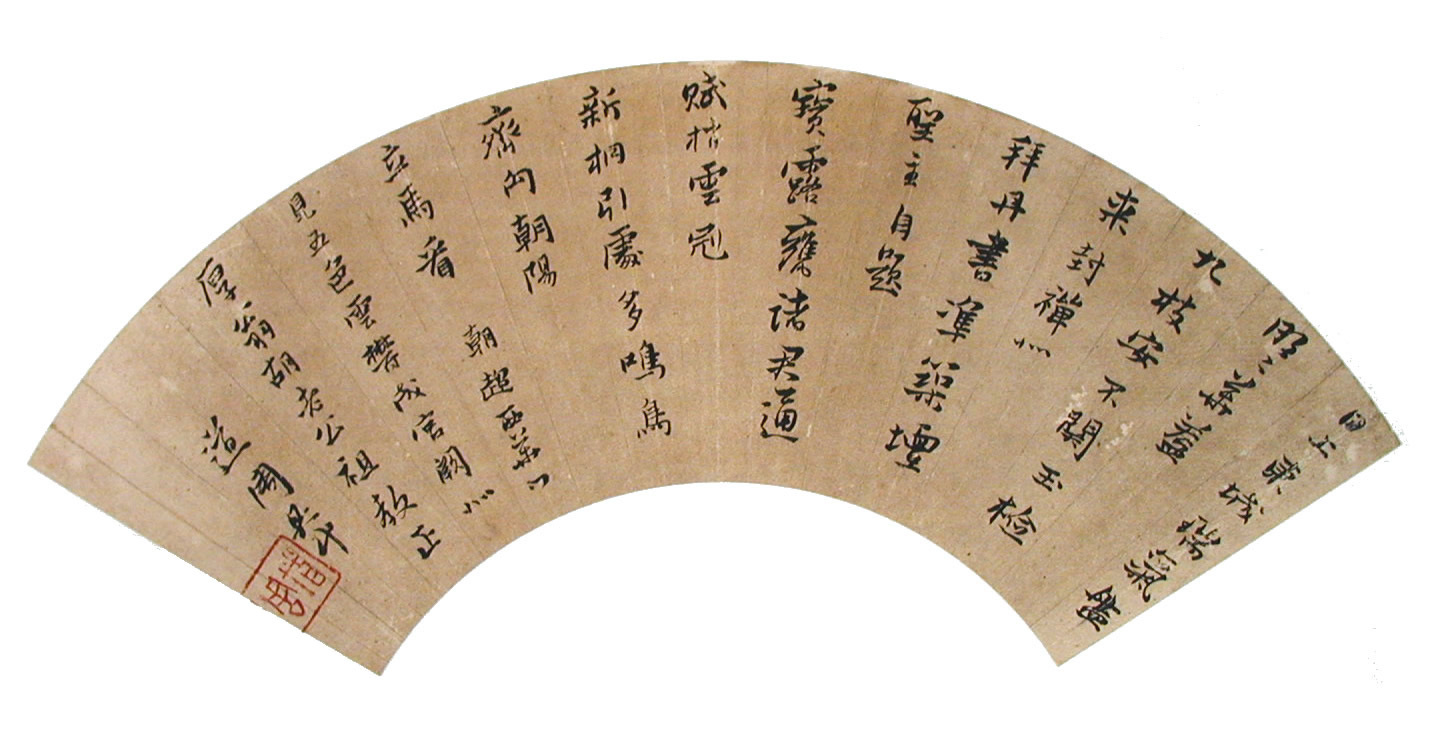 日上東城瑞氣盤
明〻華蓋
九枝安不關玉檢
來封禪必
拜丹書準築壇
聖主自題
寶露甕諸君逼
賦桔雲冠
新桐引處多鳴鳥
齊向朝陽
立馬看 朝趨西華門
見五色雲鬱成宮闕
厚翁胡老公祖教正
道周